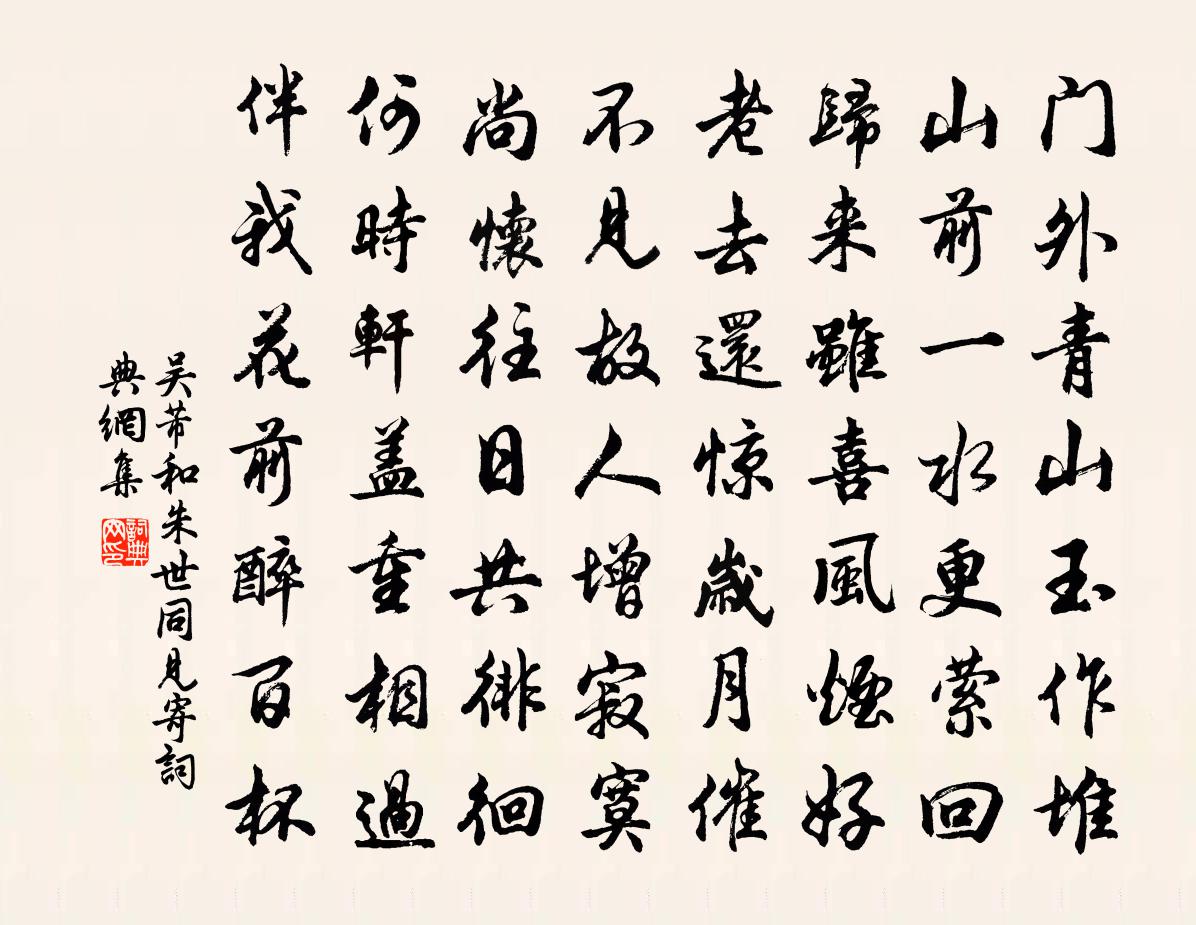 门外青山玉作堆
山前一水更萦回
歸来雖喜風煙好
老去還惊歲月催
不見故人增寂寞
尚懷往日共徘徊
何時軒盖重相過
伴我花前醉百杯
吴芾和朱世同見寄詞
典網集
詞典网印